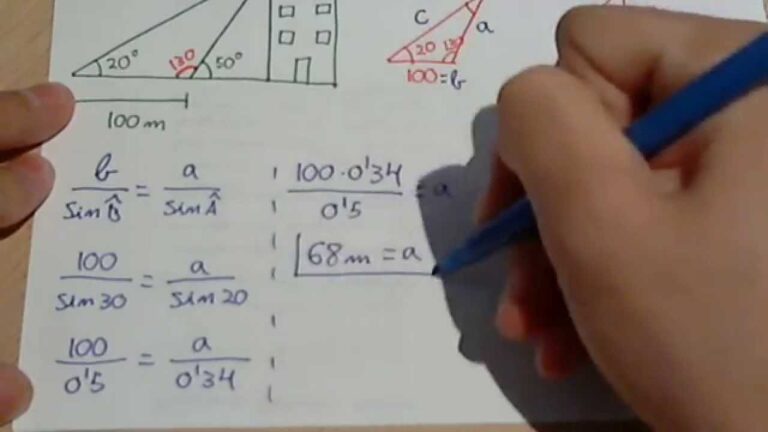 20° 130 50°
100 m
c a
20 130
100 = b
b / sin B̂ = a / sin Â
100 / sin 30 = a / sin 20
100 / 0'5 = a / 0'34
100 · 0'34 / 0'5 = a
68 m = a